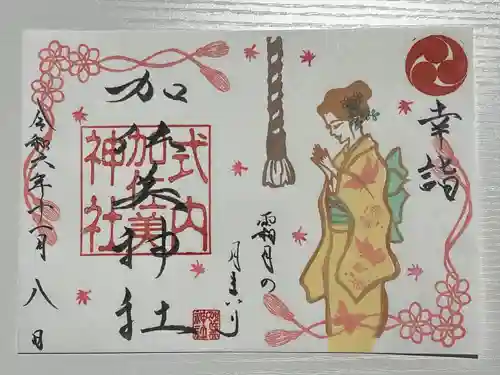 幸詣
霜月の
月まいり
加佐美神社
式内
加佐美
神社
令和六年十一月八日